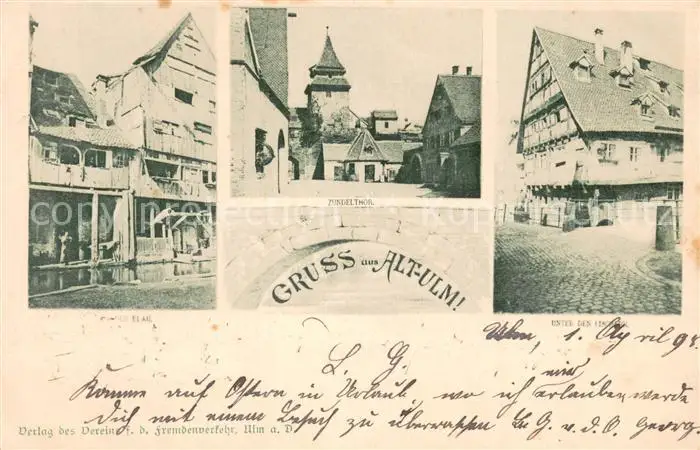 ZUNDELTHOR.
GRUSS aus ALT-ULM!
BLAU.
UNTER DEN
Ulm, 1. April 98.
L. G.
Komme auf Ostern in Urlaub, wo ich mir erlauben werde
Dich mit einem Besuch zu überraschen Br. G. v. d. O. Georg.
Verlag des Vereins f. d. Fremdenverkehr, Ulm a. D.